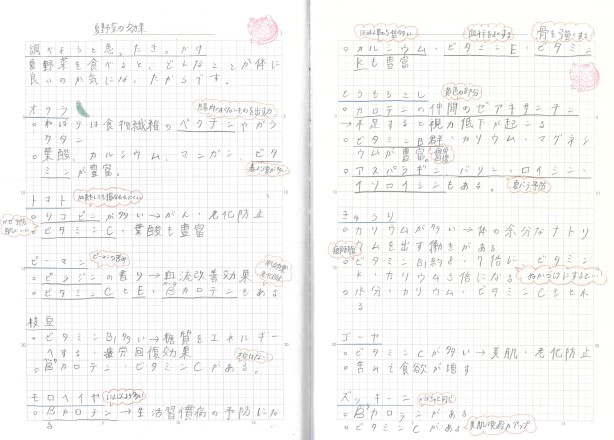 夏野菜の効果
調べようと思ったきっかけ
夏野菜を食べると、どんなことが体に
良いのか気になったからです。
オクラ
ねばりは食物繊維のペクチンやガラ
クタン
葉酸、カルシウム、マンガン、ビタ
ミンが豊富。
トマト
リコピンが多い→がん・老化防止
ビタミンC・葉酸も豊富
ピーマン
ピーマンの香り
ピラジンの香り→血流改善効果
ビタミンCとE・βカロテンもある
枝豆
ビタミンB1多い→糖質をエネルギー
へする・疲労回復効果
βカロテン・ビタミンCがある。
モロヘイヤ
βカロテン→生活習慣病の予防にな
る
骨を強くする
カルシウム・ビタミンE・ビタミン
Kも豊富
とうもろこし
黄色の部分
カロテンの仲間のゼアキサンチン
→不足すると視力低下が起こる
ビタミンB群・カリウム・マグネシ
ウムが豊富。
アスパラギン・バリン・ロイシン・
イソロイシンもある。
きゅうり
カリウムが多い→体の余分なナトリ
ウムを出す働きがある
ビタミンB1約8・7倍に、ビタミン
K・カリウム3倍になる
ぬかづけにすると…
水分・カリウム・ビタミンCもとれ
る
ゴーヤ
ビタミンCが多い→美肌・老化防止
苦れて食欲が増す
ズッキーニ
βカロテンがある
ビタミンCがある